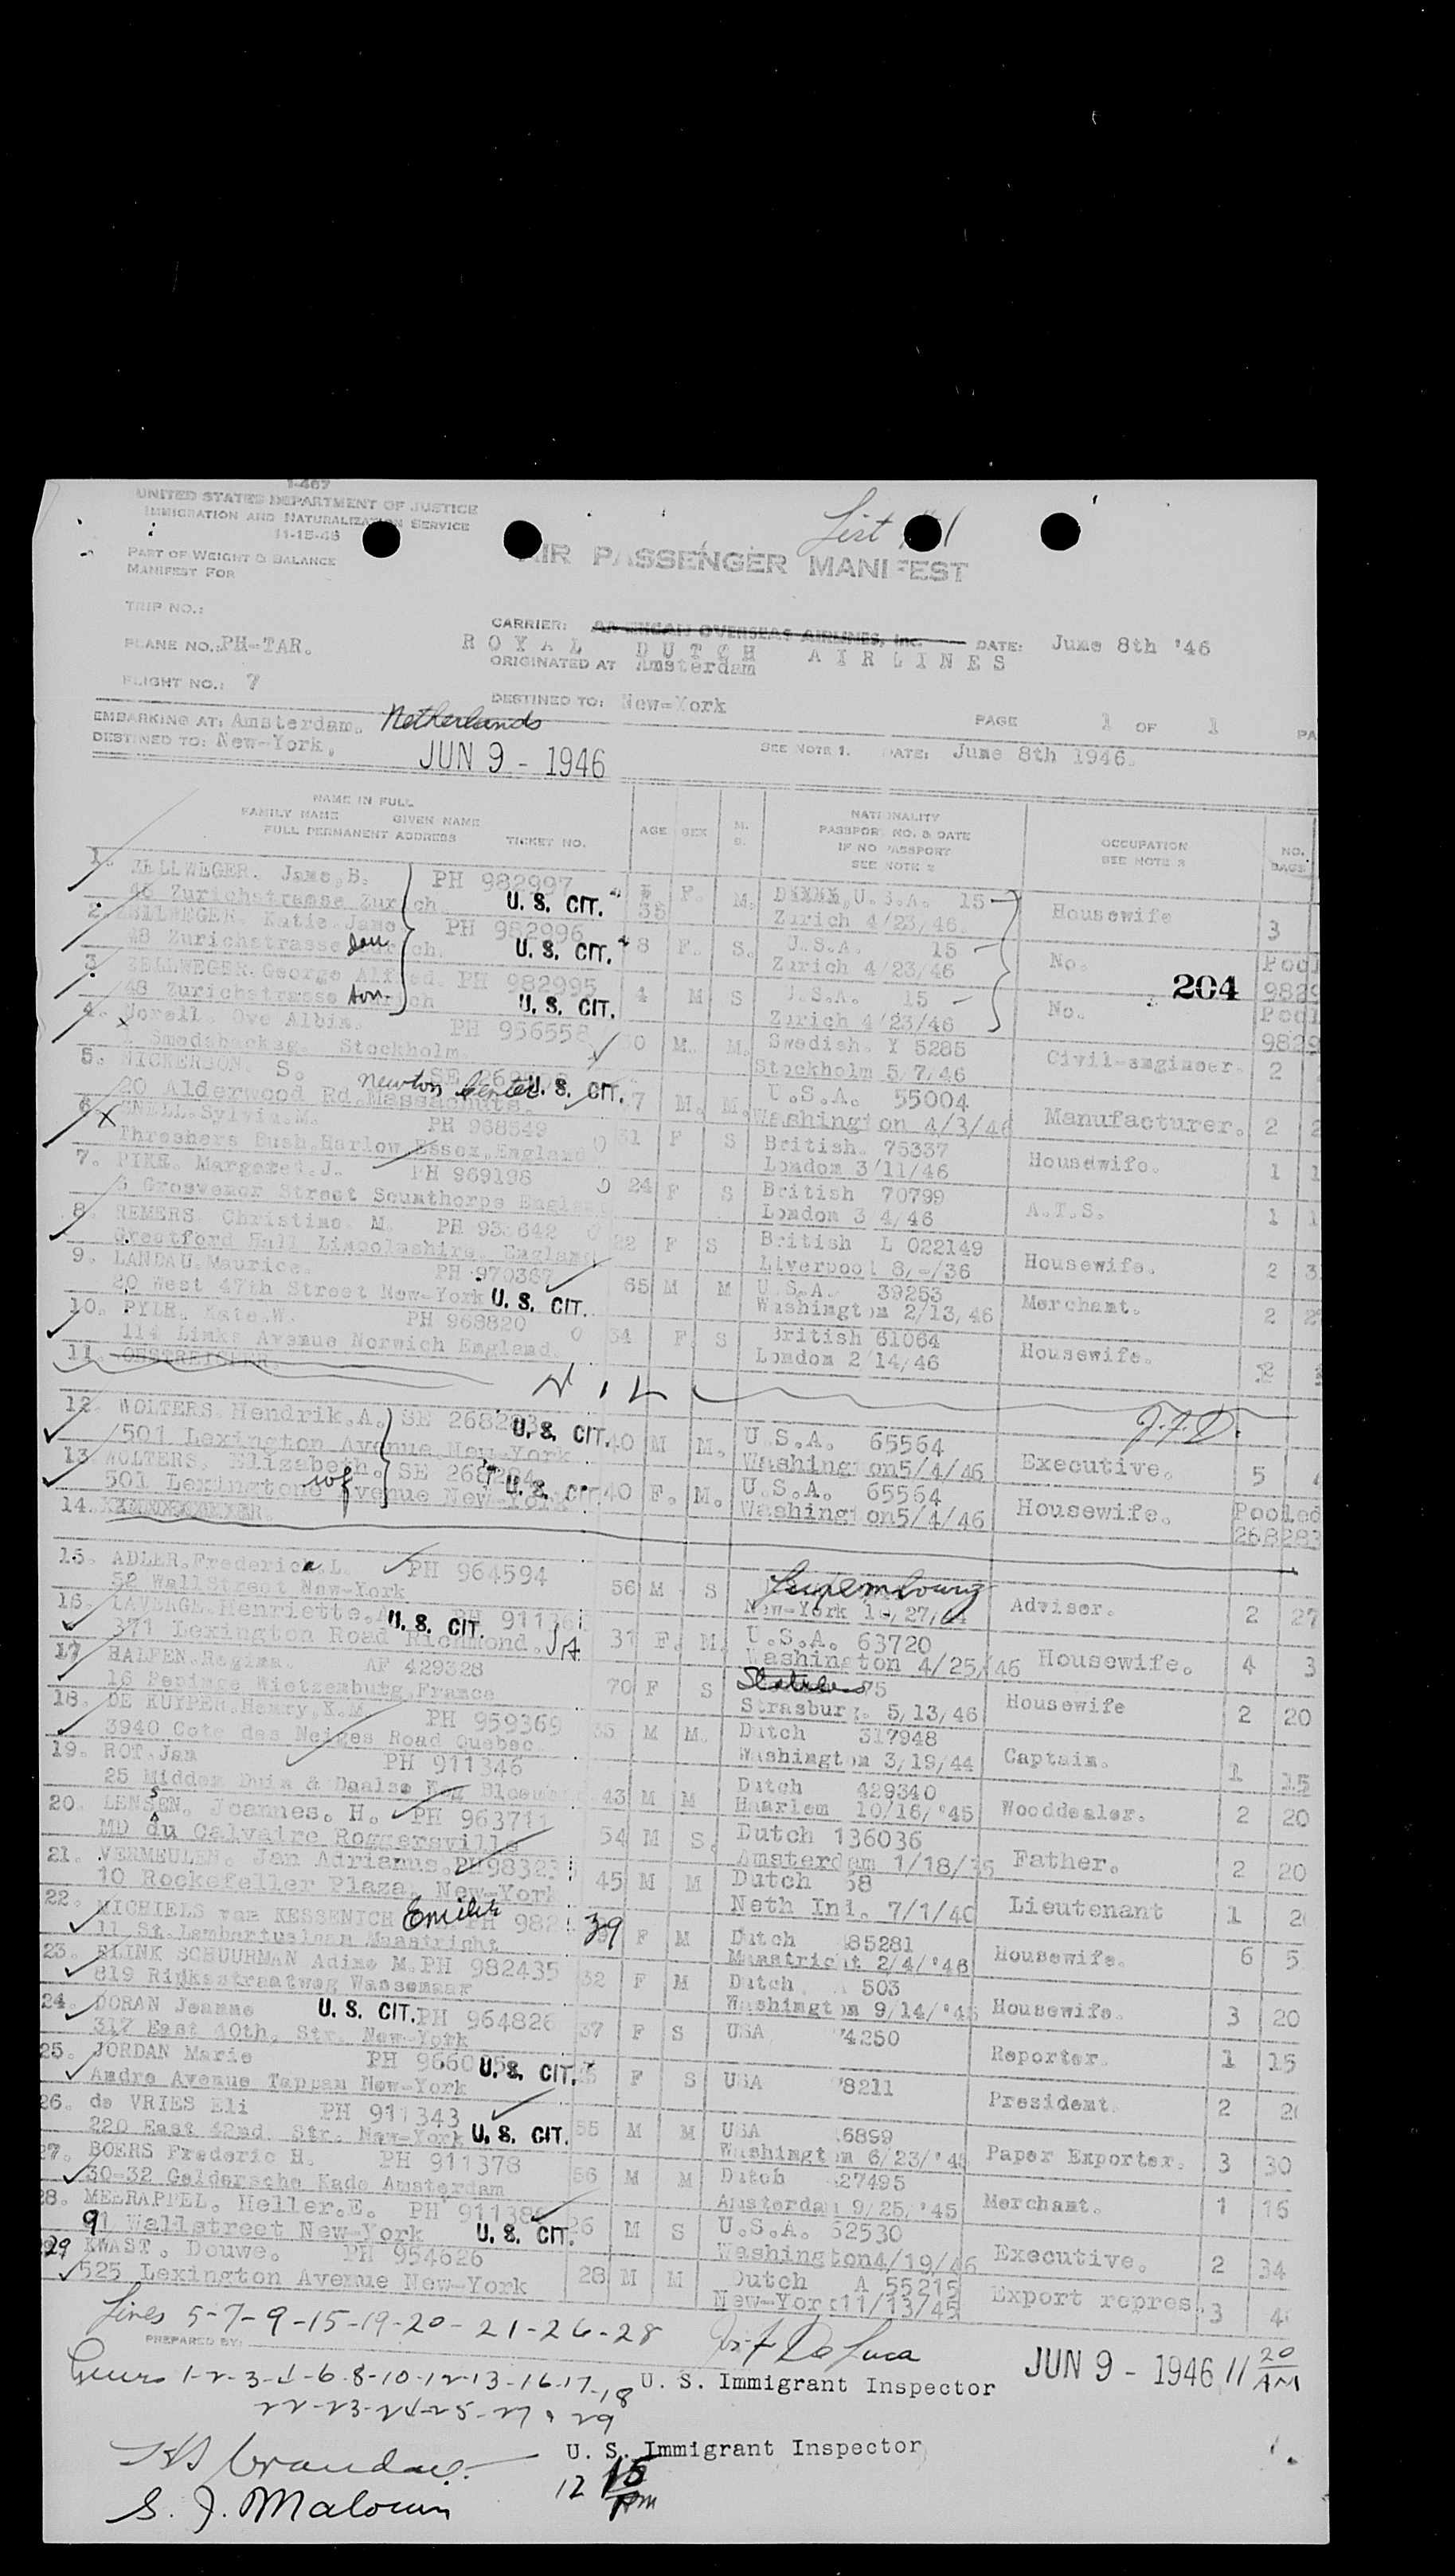 1-467
UNITED STATES DEPARTMENT OF JUSTICE
IMMIGRATION AND NATURALIZATION SERVICE
11-15-45
List #1
PART OF WEIGHT & BALANCE
MANIFEST FOR
AIR PASSENGER MANIFEST
TRIP NO.:
CARRIER: AMERICAN OVERSEAS AIRLINES, Inc. DATE: June 8th '46
PLANE NO.: PH-TAR. ROYAL DUTCH AIRLINES
ORIGINATED AT Amsterdam
FLIGHT NO.: 7
DESTINED TO: New-York
EMBARKING AT: Amsterdam. Netherlands PAGE 1 OF 1 PA
DESTINED TO: New-York. JUN 9 - 1946 SEE NOTE 1. DATE: June 8th 1946.
NAME IN FULL
FAMILY NAME GIVEN NAME
FULL PERMANENT ADDRESS TICKET NO.
AGE SEX M. S.
NATIONALITY
PASSPORT NO. & DATE
IF NO PASSPORT
SEE NOTE 2
OCCUPATION
SEE NOTE 3
NO.
BAGS
1. ZELLWEGER. Jane.B. PH 982997 F. M. U.S.A. 15 Housewife 3
48 Zurichstrasse Zurich U. S. CIT. 35 Zurich 4/23/46.
2. ZELLWEGER. Katie.Jane PH 982996 8 F. S. U.S.A. 15 No. Pool
48 Zurichstrasse dau ch. U. S. CIT. Zurich 4/23/46 204 9829
3. ZELLWEGER.George Alfred. PH 982995 4 M S U.S.A. 15 No. Pool
48 Zurichstrasse son ch U. S. CIT. Zurich 4/23/46 9829
4. Norell. Ove Albin. PH 956558 M. M. Swedish. Y 5285 Civil-engineer. 2
Smedsbacksg. Stockholm. Stockholm 5/7/46
5. NICKERSON. S. U. S. CIT. 7 M. M. U.S.A. 55004 Manufacturer. 2 2
20 Alderwood Rd. Newton Center Washington 4/3/46
6. SNELL.Sylvia.M. PH 968549 31 F S British. 75337 Housewife. 1 1
Threshers Bush.Harlow Essex.England London 3/11/46
7. PIKE. Margaret.J. PH 969198 24 F S British 70799 A.T.S. 1 1
Grosvenor Street Scunthorpe England London 3 4/46
8. REMERS. Christine. M. PH 642 22 F S British L 022149 Housewife. 2 3
Greatford Hall Lincolnshire. England Liverpool 8,-/36
9. LANDAU.Maurice. PH 970387 65 M M U.S.A. 39263 Merchant. 2 2
20 West 47th Street New-York U. S. CIT. Washington 2/13,46
10. PYLE. Kate.W. PH 968820 34 F. S British 61064 Housewife. 2
114 Links Avenue Norwich England. London 2/14/46
11.
N I L J.F.D.
12. WOLTERS.Hendrik.A. SE 268283 40 M M. U.S.A. 65564 Executive. 5
501 Lexington Avenue New-York U. S. CIT. Washington5/4/46
13. WOLTERS. Elizabeth. SE 268284 40 F. M. U.S.A. 65564 Housewife. Pooled
501 Lexingtone Avenue New-York wf U. S. CIT. Washington5/4/46 268283
14.
15. ADLER.Frederick.L. PH 964594 56 M S Luxembourg Adviser. 2 27
52 WallStreet New-York New-York
16. LAVERGE.Henriette. U. S. CIT. 37 F. M. U.S.A. 63720 Housewife. 4 3
371 Lexington Road Richmond. VA Washington 4/25/46
17 HALFEN.Regina. AF 429328 70 F S Stateless 75 Housewife 2 20
16 Wietzemburg.France Strasburg. 5,13/46
18. DE KUYPER.Henry.X.M. PH 959369 35 M M. Dutch 317948 Captain. 1 15
3940 Cote des Neiges Road Quebec. Washington 3/19/44
19. ROT.Jan PH 911346 43 M M Dutch 429340 Wooddealer. 2 20
25 Midden Duin & Daalse Weg Haarlem 10/16/'45
20. LENSEN. Joannes. H. PH 963711 54 M S. Dutch 136036 Father. 2 20
MD du Calvaire Roggersville Amsterdam 1/18/
21. VERMEULEN. Jan Adrianus. PH 98323 45 M M Dutch 68 Lieutenant 1 2
10 Rockefeller Plaza. New-York Neth Ind. 7/1/40
22. MICHIELS van KESSENICH Emilie PH 982 39 F M Dutch 85281 Housewife. 6 5
11 St. Lambertuslaan Maastricht Maastricht 2/4/'46
23. FLINK SCHUURMAN Adine M.PH 982435 32 F M Dutch 503 Housewife. 3 20
819 Rijksstraatweg Wassenaar Washington 9/14/'45
24. DORAN Jeanne U. S. CIT. PH 964826 37 F S USA 4250 Reporter. 1 15
317 East 40th. Str. New-York
25. JORDAN Marie PH 9660 U. S. CIT. F S USA 8211 President. 2
Andre Avenue Tappan New-York
26. de VRIES Eli PH 911343 55 M M USA 6899 Paper Exporter. 3 30
220 East 42nd. Str. New-York U. S. CIT. Washington 6/23/'45
27. BOERS Frederic H. PH 911378 56 M M Dutch 27495 Merchant. 1 15
30-32 Geldersche Kade Amsterdam Amsterdam 9/25/'45
28. MEERAPFEL. Heller.E. PH 91138 26 M S U.S.A. 52530 Executive. 2 34
91 Wallstreet New-York U. S. CIT. Washington4/19/46
29 KWAST. Douwe. PH 954626 28 M M Dutch A 55215 Export repres. 3 4
525 Lexington Avenue New-York New-York11/13/45
Lines 5-7-9-15-19-20-21-26-28
PREPARED BY: Jos F De Luca
Lines 1-2-3-4-6-8-10-12-13-16-17-18 U. S. Immigrant Inspector JUN 9 - 1946 11 20 AM
22-23-24-25-27 & 29
U. S. Immigrant Inspector
12 15 PM
S. J. Malouin